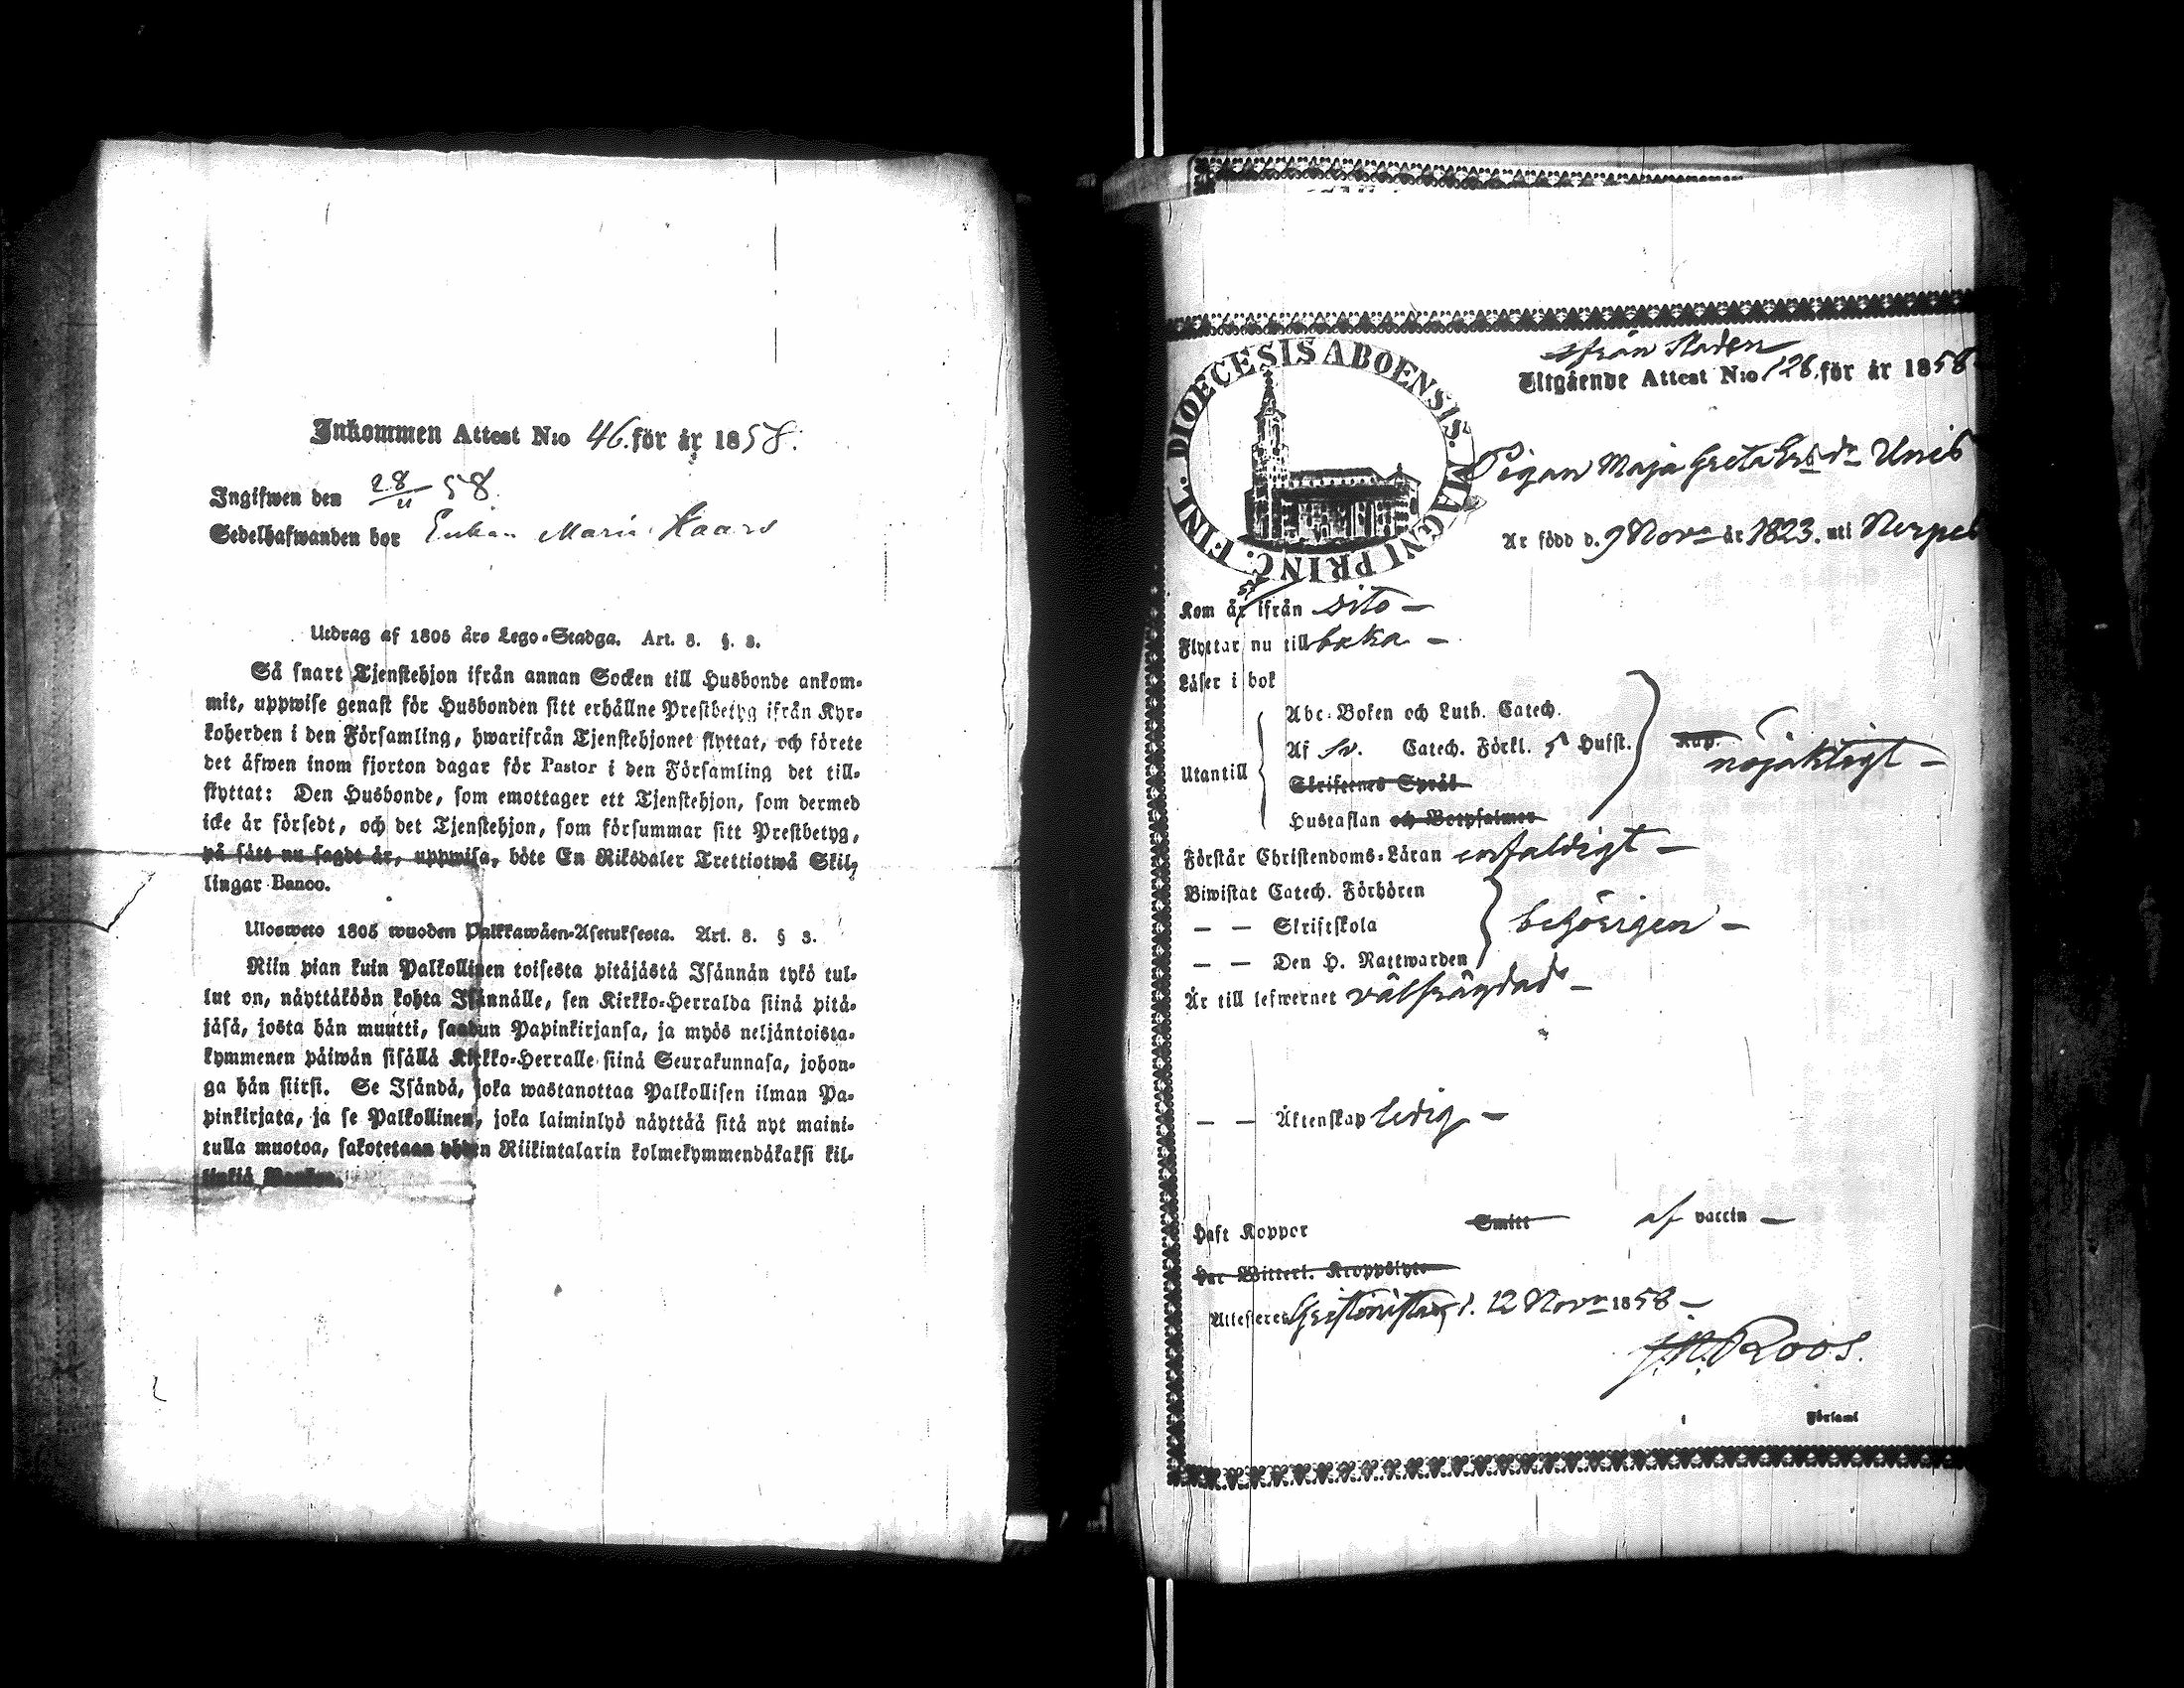 Inkommen Attest N:o 46. för år 1858.
Ingifwen den 28/11 58.
Sedelhafwanden bor Enkan Maria Haars
Utdrag af 1805 års Lego-Stadga. Art. 8. §. 3.
Så snart Tjenstehjon ifrån annan Socken till Husbonde ankom-
mit, uppwise genast för Husbonden sitt erhållne Prestbetyg ifrån Kyr-
koherden i den Församling, hwarifrån Tjenstehjonet flyttat, och förete
det äfwen inom fjorton dagar för Pastor i den Församling det till-
flyttat: Den Husbonde, som emottager ett Tjenstehjon, som dermed
icke är försedt, och det Tjenstehjon, som försummar sitt Prestbetyg,
på sätt nu sagdt är, uppwisa, böte En Riksdaler Trettiotwå Skil-
lingar Banco.
Ulosweto 1805 wuoden Palkkawäen-Asetuksesta. Art. 8. § 3.
Niin pian kuin Palkollinen toisesta pitäjästä Isännän tykö tul-
lut on, näyttäköön kohta Isännälle, sen Kirkko-Herralda siinä pitä-
jäsä, josta hän muutti, saadun Papinkirjansa, ja myös neljäntoista-
kymmenen päiwän sisällä Kirkko-Herralle siinä Seurakunnasa, johon-
ga hän siirsi. Se Isändä, joka wastanottaa Palkollisen ilman Pa-
pinkirjata, ja se Palkollinen, joka laiminlyö näyttää sitä nyt maini-
tulla muotoa, sakotetaan yhden Riikintalarin kolmekymmendäkaksi kil-
linkiä Bankos.
DIOECESIS ABOENSIS. MAGNI PRINC. FINL.
ifrån Staden
Utgående Attest N:o 126. för år 1858
Pigan Maja Greta Ersdr Unis
Är född d. 9 Novr år 1823. uti Nerpes
Kom år ifrån dito —
Flyttar nu till baka —
Läser i bok
Abc-Boken och Luth. Catech.
Utantill Af Sv. Catech. Förkl. 5 Hufst. nöjaktigt —
Skriftenes Språk
Hustaflan och Botpsalmer
Förstår Christendoms-Läran enfaldigt —
Biwistat Catech. Förhören
— — Skriftskola behörigen —
— — Den H. Nattwarden
Är till lefwernet välfrägdad —
— — Äktenskap ledig —
Haft Koppor Smitt af vaccin —
Har Witterl. Kroppslyte
Attesteres Christinestad, d. 12 Novr 1858 —
J. N. Roos.
Församl